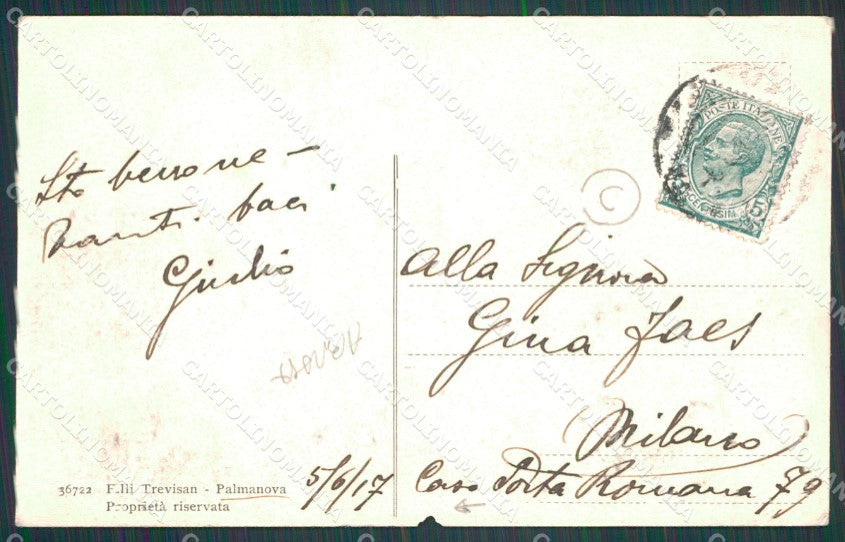 Sto benone –
Tanti baci
Giulio
5/6/17
36722 F.lli Trevisan - Palmanova
Proprietà riservata
POSTE ITALIANE
CENTESIMI 5
C
Alla Signora
Gina Jaes
Milano
Corso Porta Romana 79
CARTOLINOMANIA